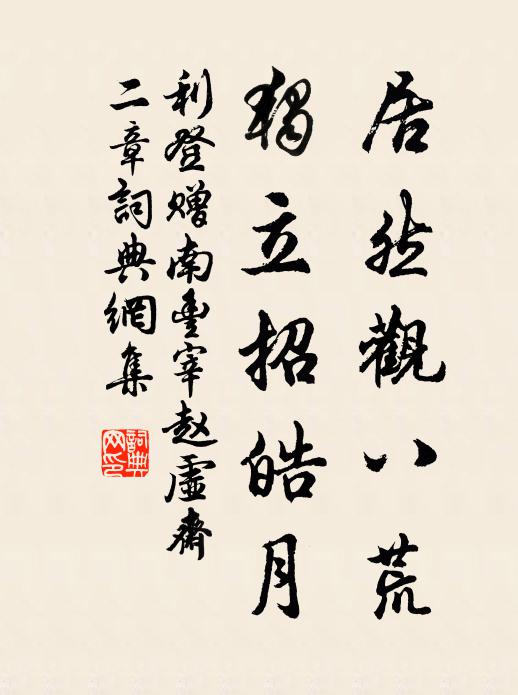 居然觀八荒
獨立招皓月
利登赠南豊宰赵虛齋
二章詞典網集
詞典网印